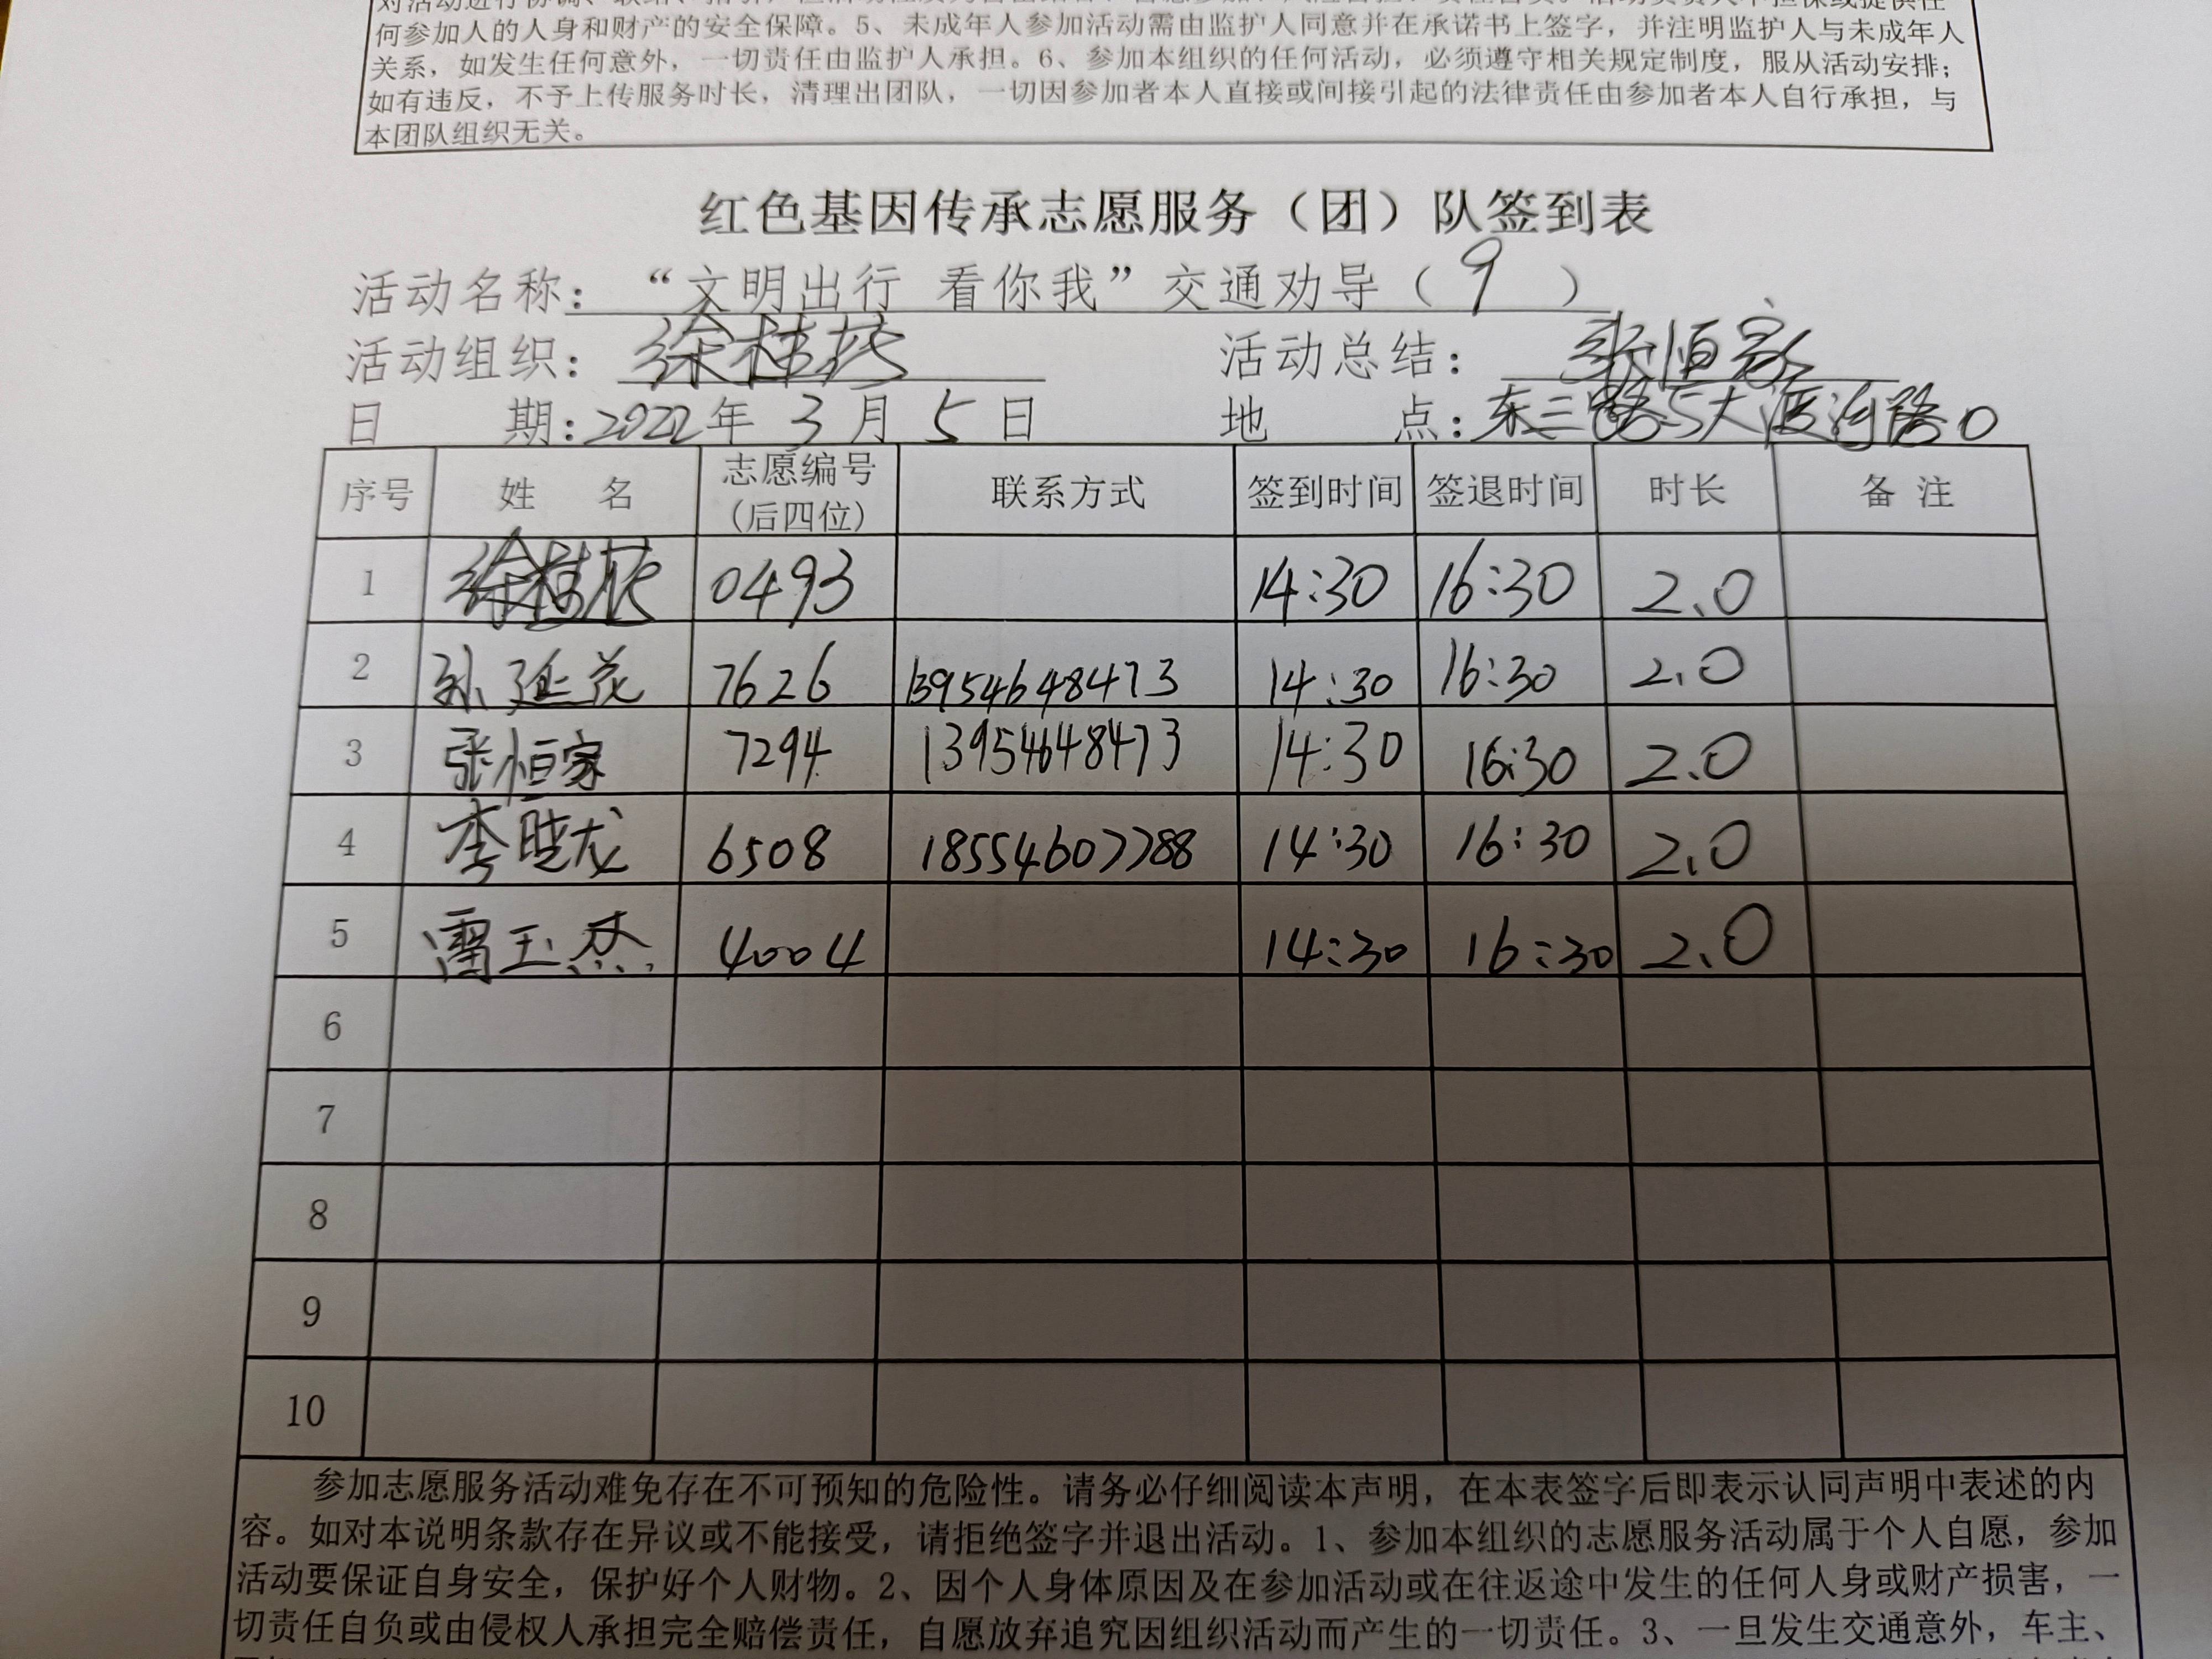 何参加人的人身和财产的安全保障。5、未成年人参加活动需由监护人同意并在承诺书上签字，并注明监护人与未成年人
关系，如发生任何意外，一切责任由监护人承担。6、参加本组织的任何活动，必须遵守相关规定制度，服从活动安排；
如有违反，不予上传服务时长，清理出团队，一切因参加者本人直接或间接引起的法律责任由参加者本人自行承担，与
本团队组织无关。
红色基因传承志愿服务（团）队签到表
活动名称：“文明出行 看你我”交通劝导（9）
活动组织：徐桂花 活动总结：张恒家
日 期：2022年3月5日 地 点：东三路与大渡河路口
序号 姓 名 志愿编号（后四位） 联系方式 签到时间 签退时间 时长 备 注
1 徐桂花 0493 14:30 16:30 2.0
2 孙延花 7626 13954648473 14:30 16:30 2.0
3 张恒家 7294 13954648473 14:30 16:30 2.0
4 李晓龙 6508 18554607788 14:30 16:30 2.0
5 雷玉杰 4004 14:30 16:30 2.0
6
7
8
9
10
参加志愿服务活动难免存在不可预知的危险性。请务必仔细阅读本声明，在本表签字后即表示认同声明中表述的内
容。如对本说明条款存在异议或不能接受，请拒绝签字并退出活动。1、参加本组织的志愿服务活动属于个人自愿，参加
活动要保证自身安全，保护好个人财物。2、因个人身体原因及在参加活动或在往返途中发生的任何人身或财产损害，一
切责任自负或由侵权人承担完全赔偿责任，自愿放弃追究因组织活动而产生的一切责任。3、一旦发生交通意外，车主、